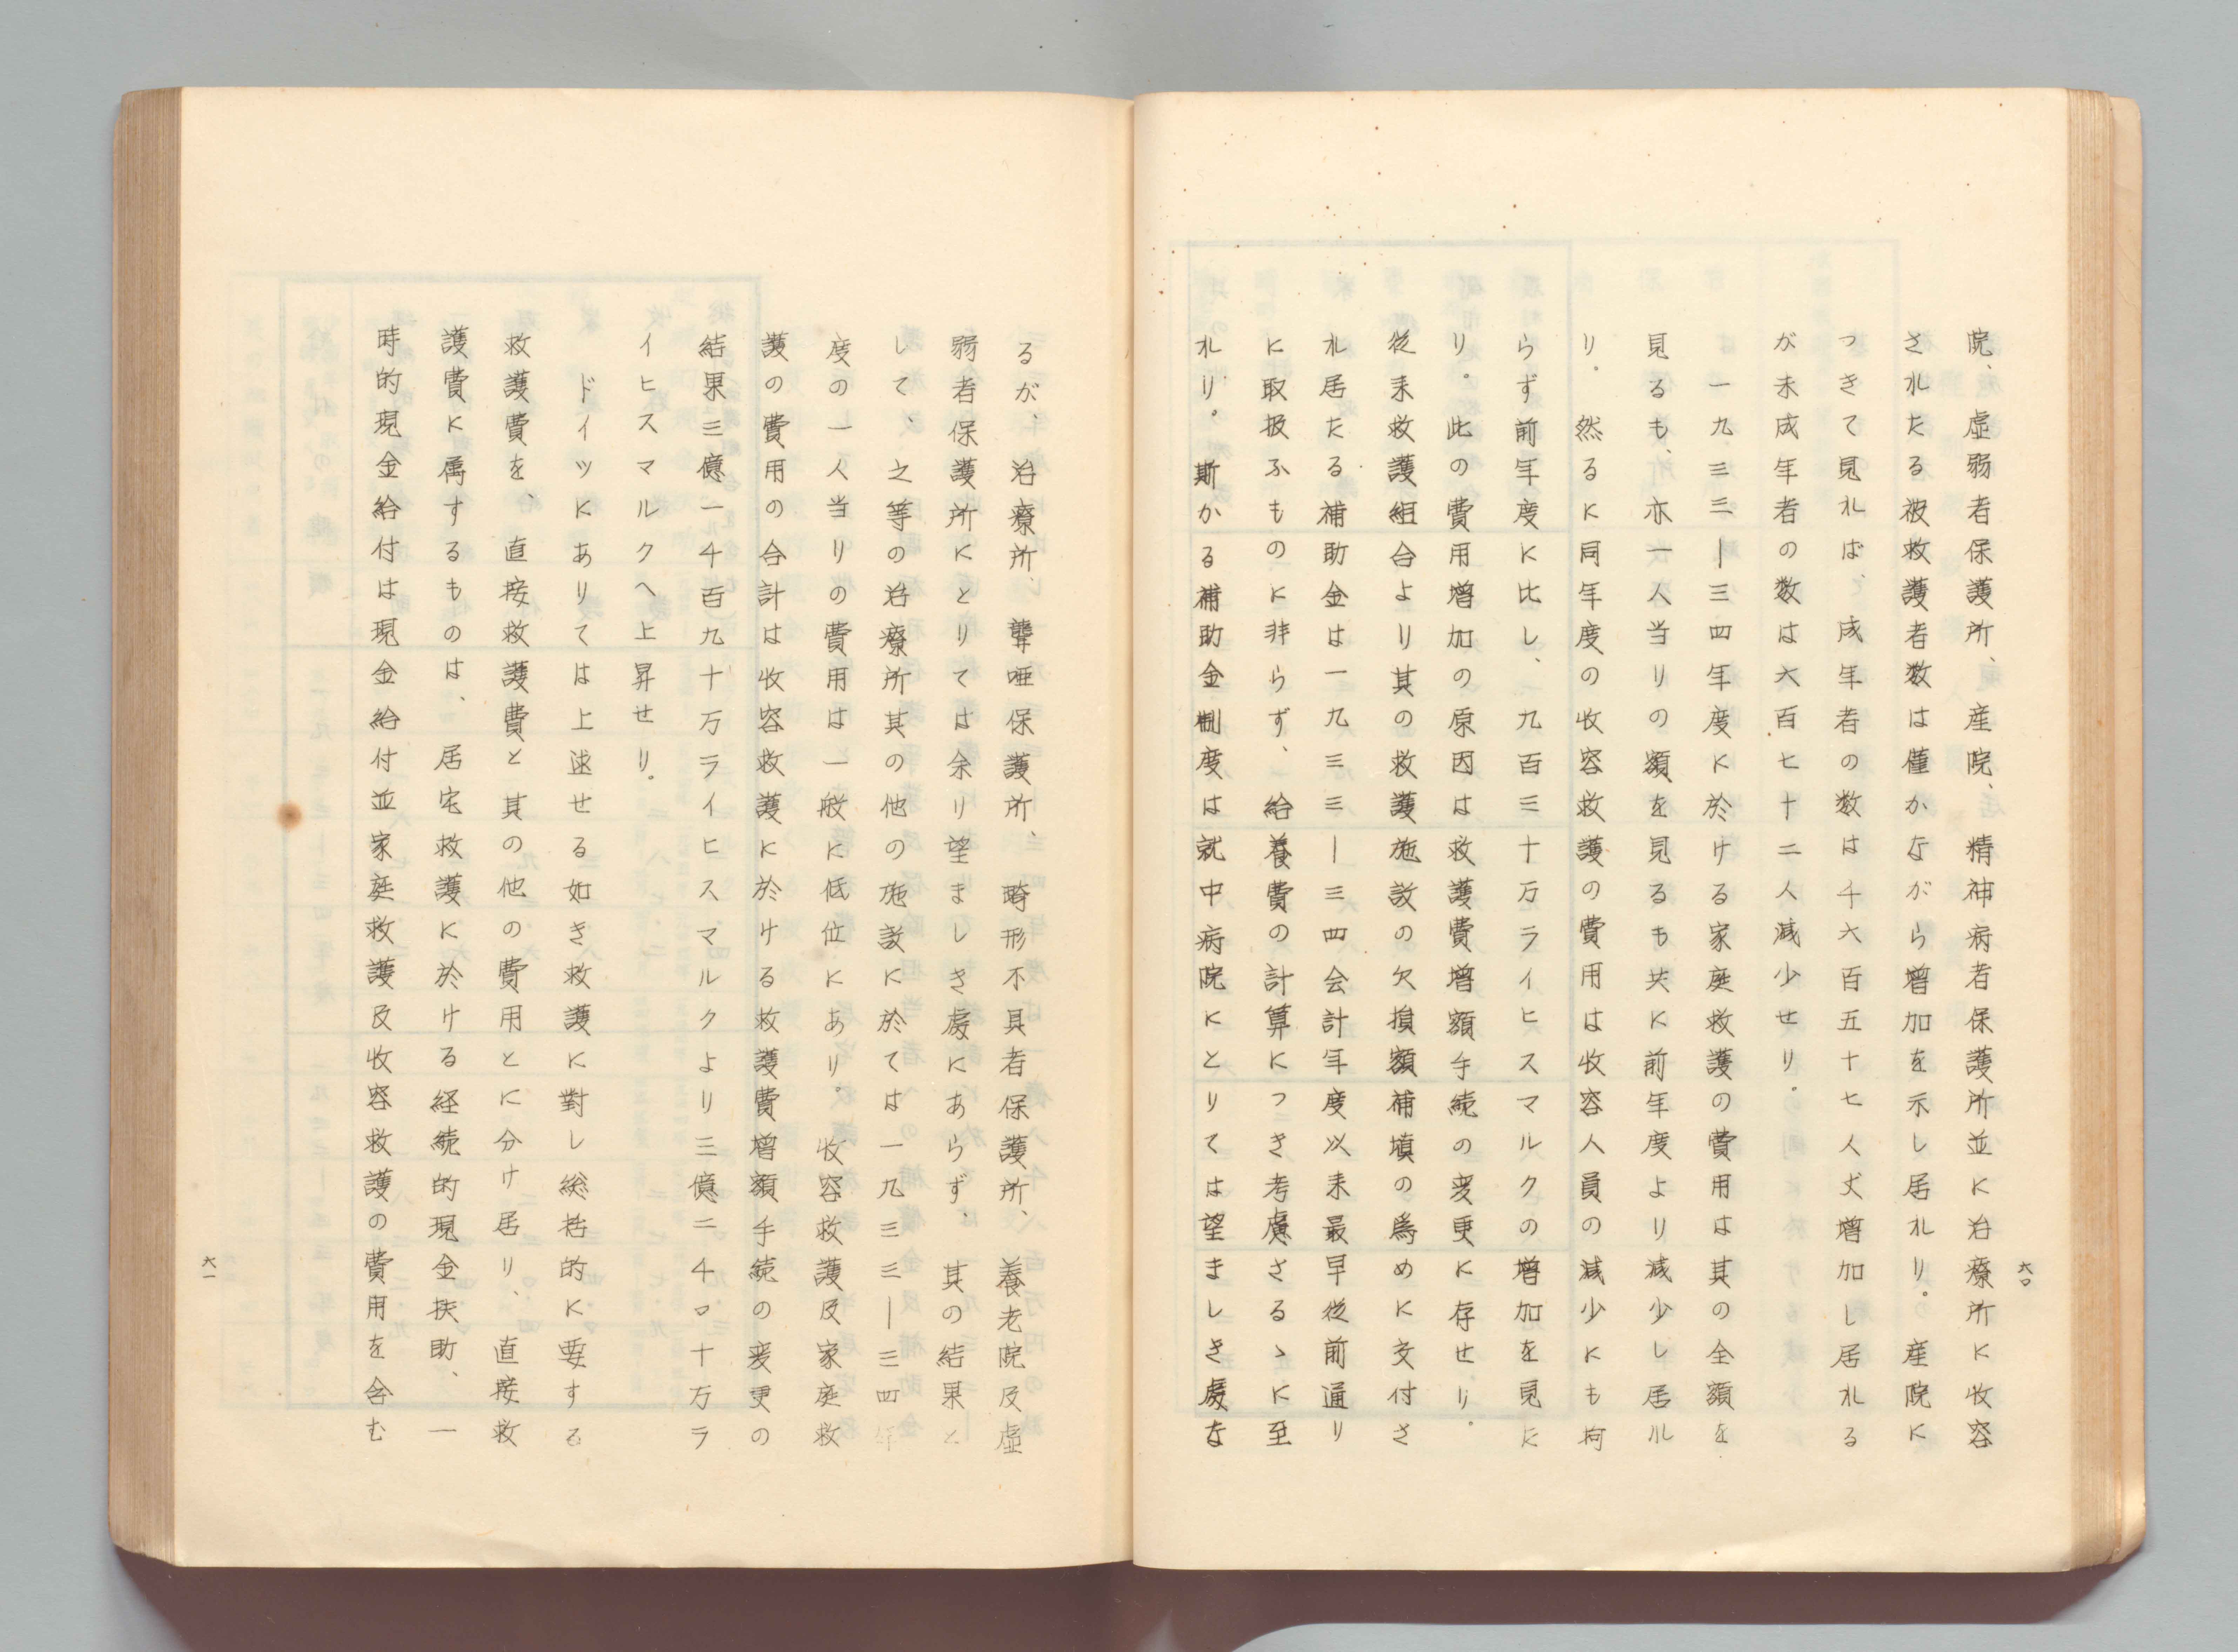 院、虚弱者保護所、産院、精神病者保護所並に治療所に收容
されたる被救護者数は僅かながら増加を示し居れり。産院に
つきて見れば、成年者の数は千六百五十七人丈増加し居れる
が未成年者の数は六百七十二人減少せり。
一九三三―三四年度に於ける家庭救護の費用は其の全額を
見るも、亦一人当りの額を見るも共に前年度より減少し居ル
り。然るに同年度の收容救護の費用は收容人員の減少にも拘
らず前年度に比し、一九百三十万ライヒスマルクの増加を見に
り。此の費用増加の原因は救護費増額手続の変更に存せり。
従来救護組合より其の救護施設の欠損額補填の爲めに交付さ
れ居たる補助金は一九三三―三四会計年度以来最早従前通り
に取扱ふものに非らず、給養費の計算につき考慮さるゝに至
れり。斯かる補助金制度は就中病院にとりては望ましき處な
六〇
るが、治療所、聾唖保護所、畸形不具者保護所、養老院及虚
弱者保護所にとりては余り望ましき處にあらず、其の結果と
して、之等の治療所其の他の施設に於ては一九三三―三四年
度の一人当りの費用は一般に低位にあり。收容救護及家庭救
護の費用の合計は收容救護に於ける救護費増額手続の変更の
結果三億一千百九十万ライヒスマルクより三億二千〇十万ラ
イヒスマルクへ上昇せり。
ドイツにありては上述せる如き救護に對し総括的に要する
救護費を、直接救護費と其の他の費用とに分け居り、直接救
護費に属するものは、居宅救護に於ける経続的現金扶助、一
時的現金給付は現金給付並家庭救護及收容救護の費用を含む
六一